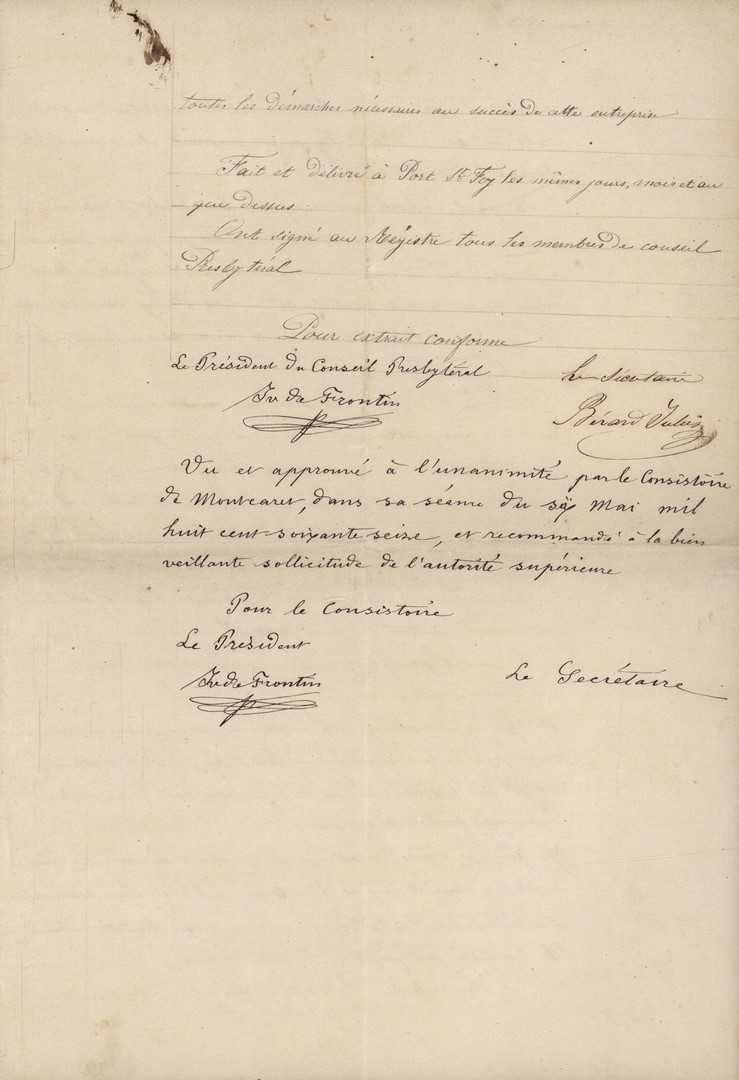 toutes les démarches nécessaires au succès de cette entreprise
Fait et délivré à Port Ste Foy les mêmes jours, mois et an
que dessus.
Ont signé au Régistre tous les membres de conseil
Presbytéral
Pour extrait conforme
Le Président du Conseil Presbytéral
Le Sécretaire
de Frontin
Bérard Jules
Vu et approuvé à l'unanimité par le Consistoire
de Montcaret, dans sa séance du Mai mil
huit cent-soixante seize, et recommandé à la bien
veillante sollicitude de l'autorité supérieure
Pour le Consistoire
Le Président
Le Secrétaire
de Frontin